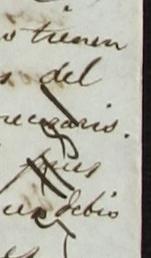 o tienen
s del
necesario.
pues
que debio